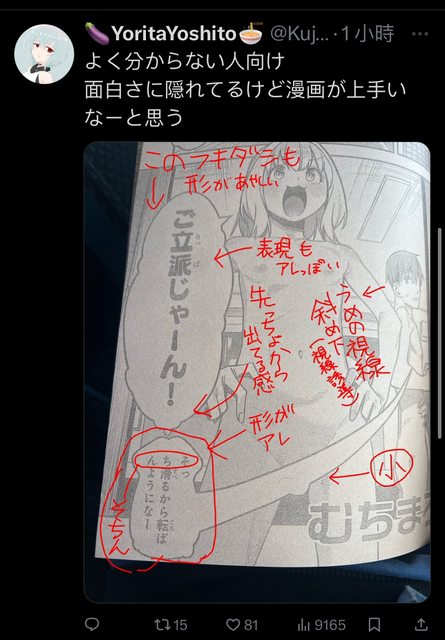 🍆YoritaYoshito🍜 @Kuj... · 1小時
よく分からない人向け
面白さに隠れてるけど漫画が上手い
なーと思う
このフキダシも
形があやしい
ご立派じゃーん！
りっぱ
表現も
アレっぽい
先っちょから
出てる感
うめの視線
斜め下
(視線誘導)
形が
アレ
そっ
ち滑るから転ば
んようになー
すべ
ころ
そちん
小
むちまろ
15
81
9165